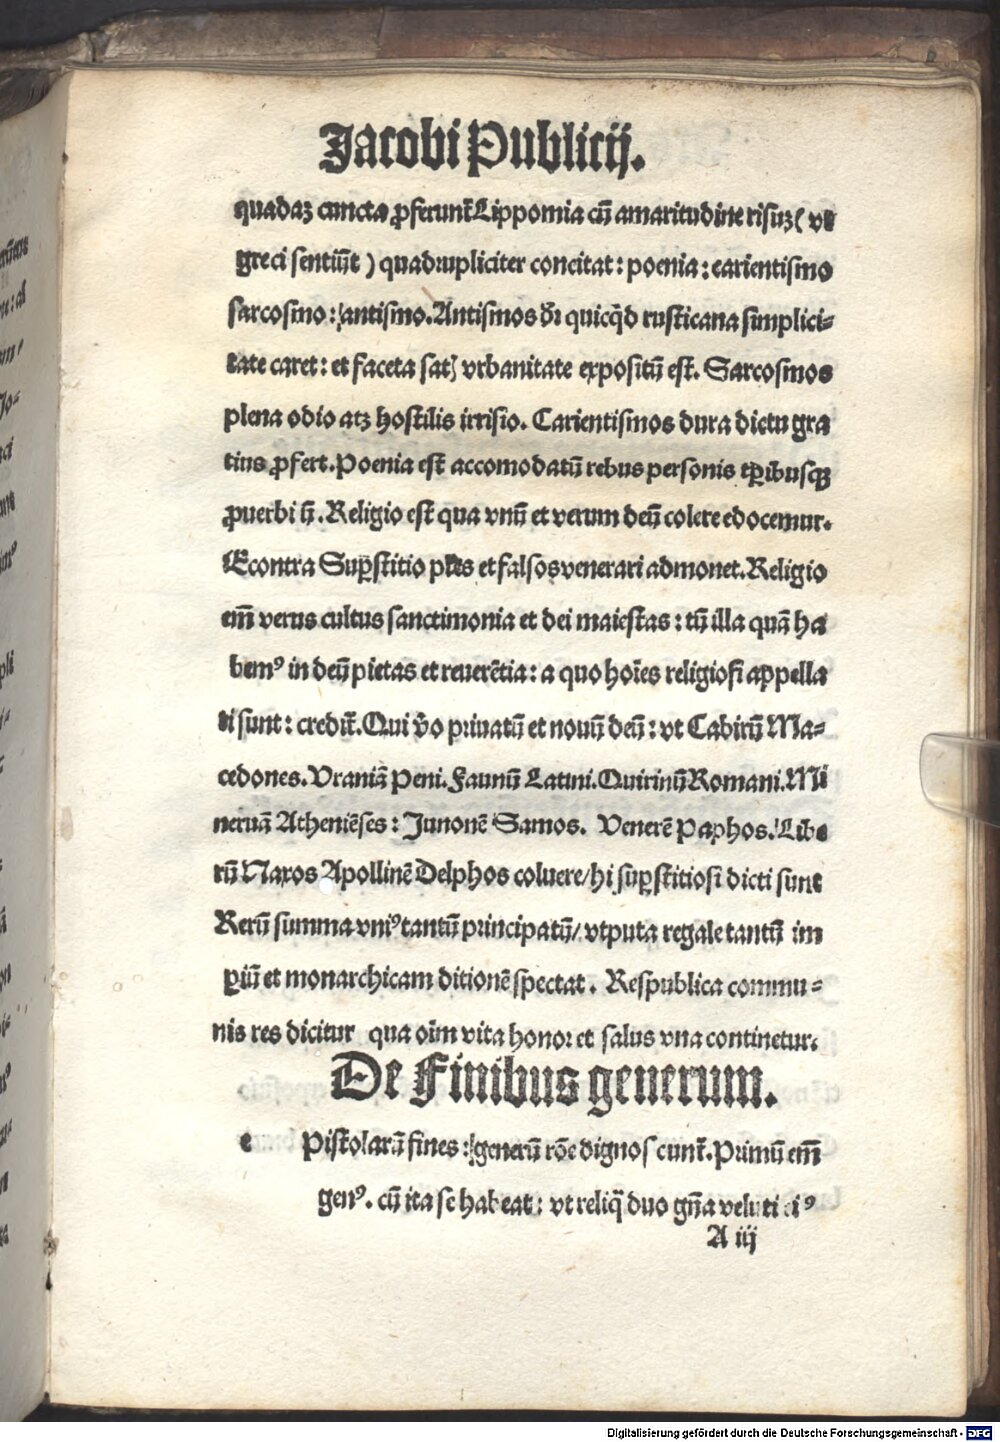 Jacobi Publicij.
quadaꝫ cuncta ꝓferunt̄ Lippomia cū amaritudine risuꝫ ( vt
greci sentiūt ) quadrupliciter concitat : poenia : carientismo
sarcosmo : antismo. Antismos dr̄ quicq̄d rusticana simplici⸗
tate caret : et faceta satꝭ vrbanitate expositū est. Sarcosmos
plena odio atꝫ hostilis irrisio. Carientismos dura dictu gra
tius ꝓfert. Poenia est accomodatū rebus personis tp̄ibusqꝫ
ꝓuerbiū. Religio est qua vnū et verum deū colere edocemur.
Econtra Suꝑstitio pl̄es et falsos venerari admonet. Religio
em̄ verus cultus sanctimonia et dei maiestas : tū illa quā ha
bemꝰ in deū pietas et reuerētia : a quo hoīes religiosi appella
ti sunt : credit̄. Qui v̄o priuatū et nouū deū : vt Cabirū Ma⸗
cedones. Vraniā Peni. Faunū Latini. Quirinū Romani. Mi
neruā Atheniēses : Junonē Samos. Venerē Paphos. Libe
rū Naxos Apollinē Delphos coluere / hi suꝑstitiosi dicti sunt
Rerū summa vniꝰ tantū principatū / vtputa regale tantū im
ꝑiū et monarchicam ditionē spectat. Respublica commu⸗
nis res dicitur qua oīm vita honor et salus vna continetur.
De Finibus generum.
e Pistolarū fines : generū rōe dignoscunt̄. Primū em̄
genꝰ. cū ita se habeat : vt reliq̄ duo gn̄a veluti eiꝰ
A iij
Digitalisierung gefördert durch die Deutsche Forschungsgemeinschaft - DFG